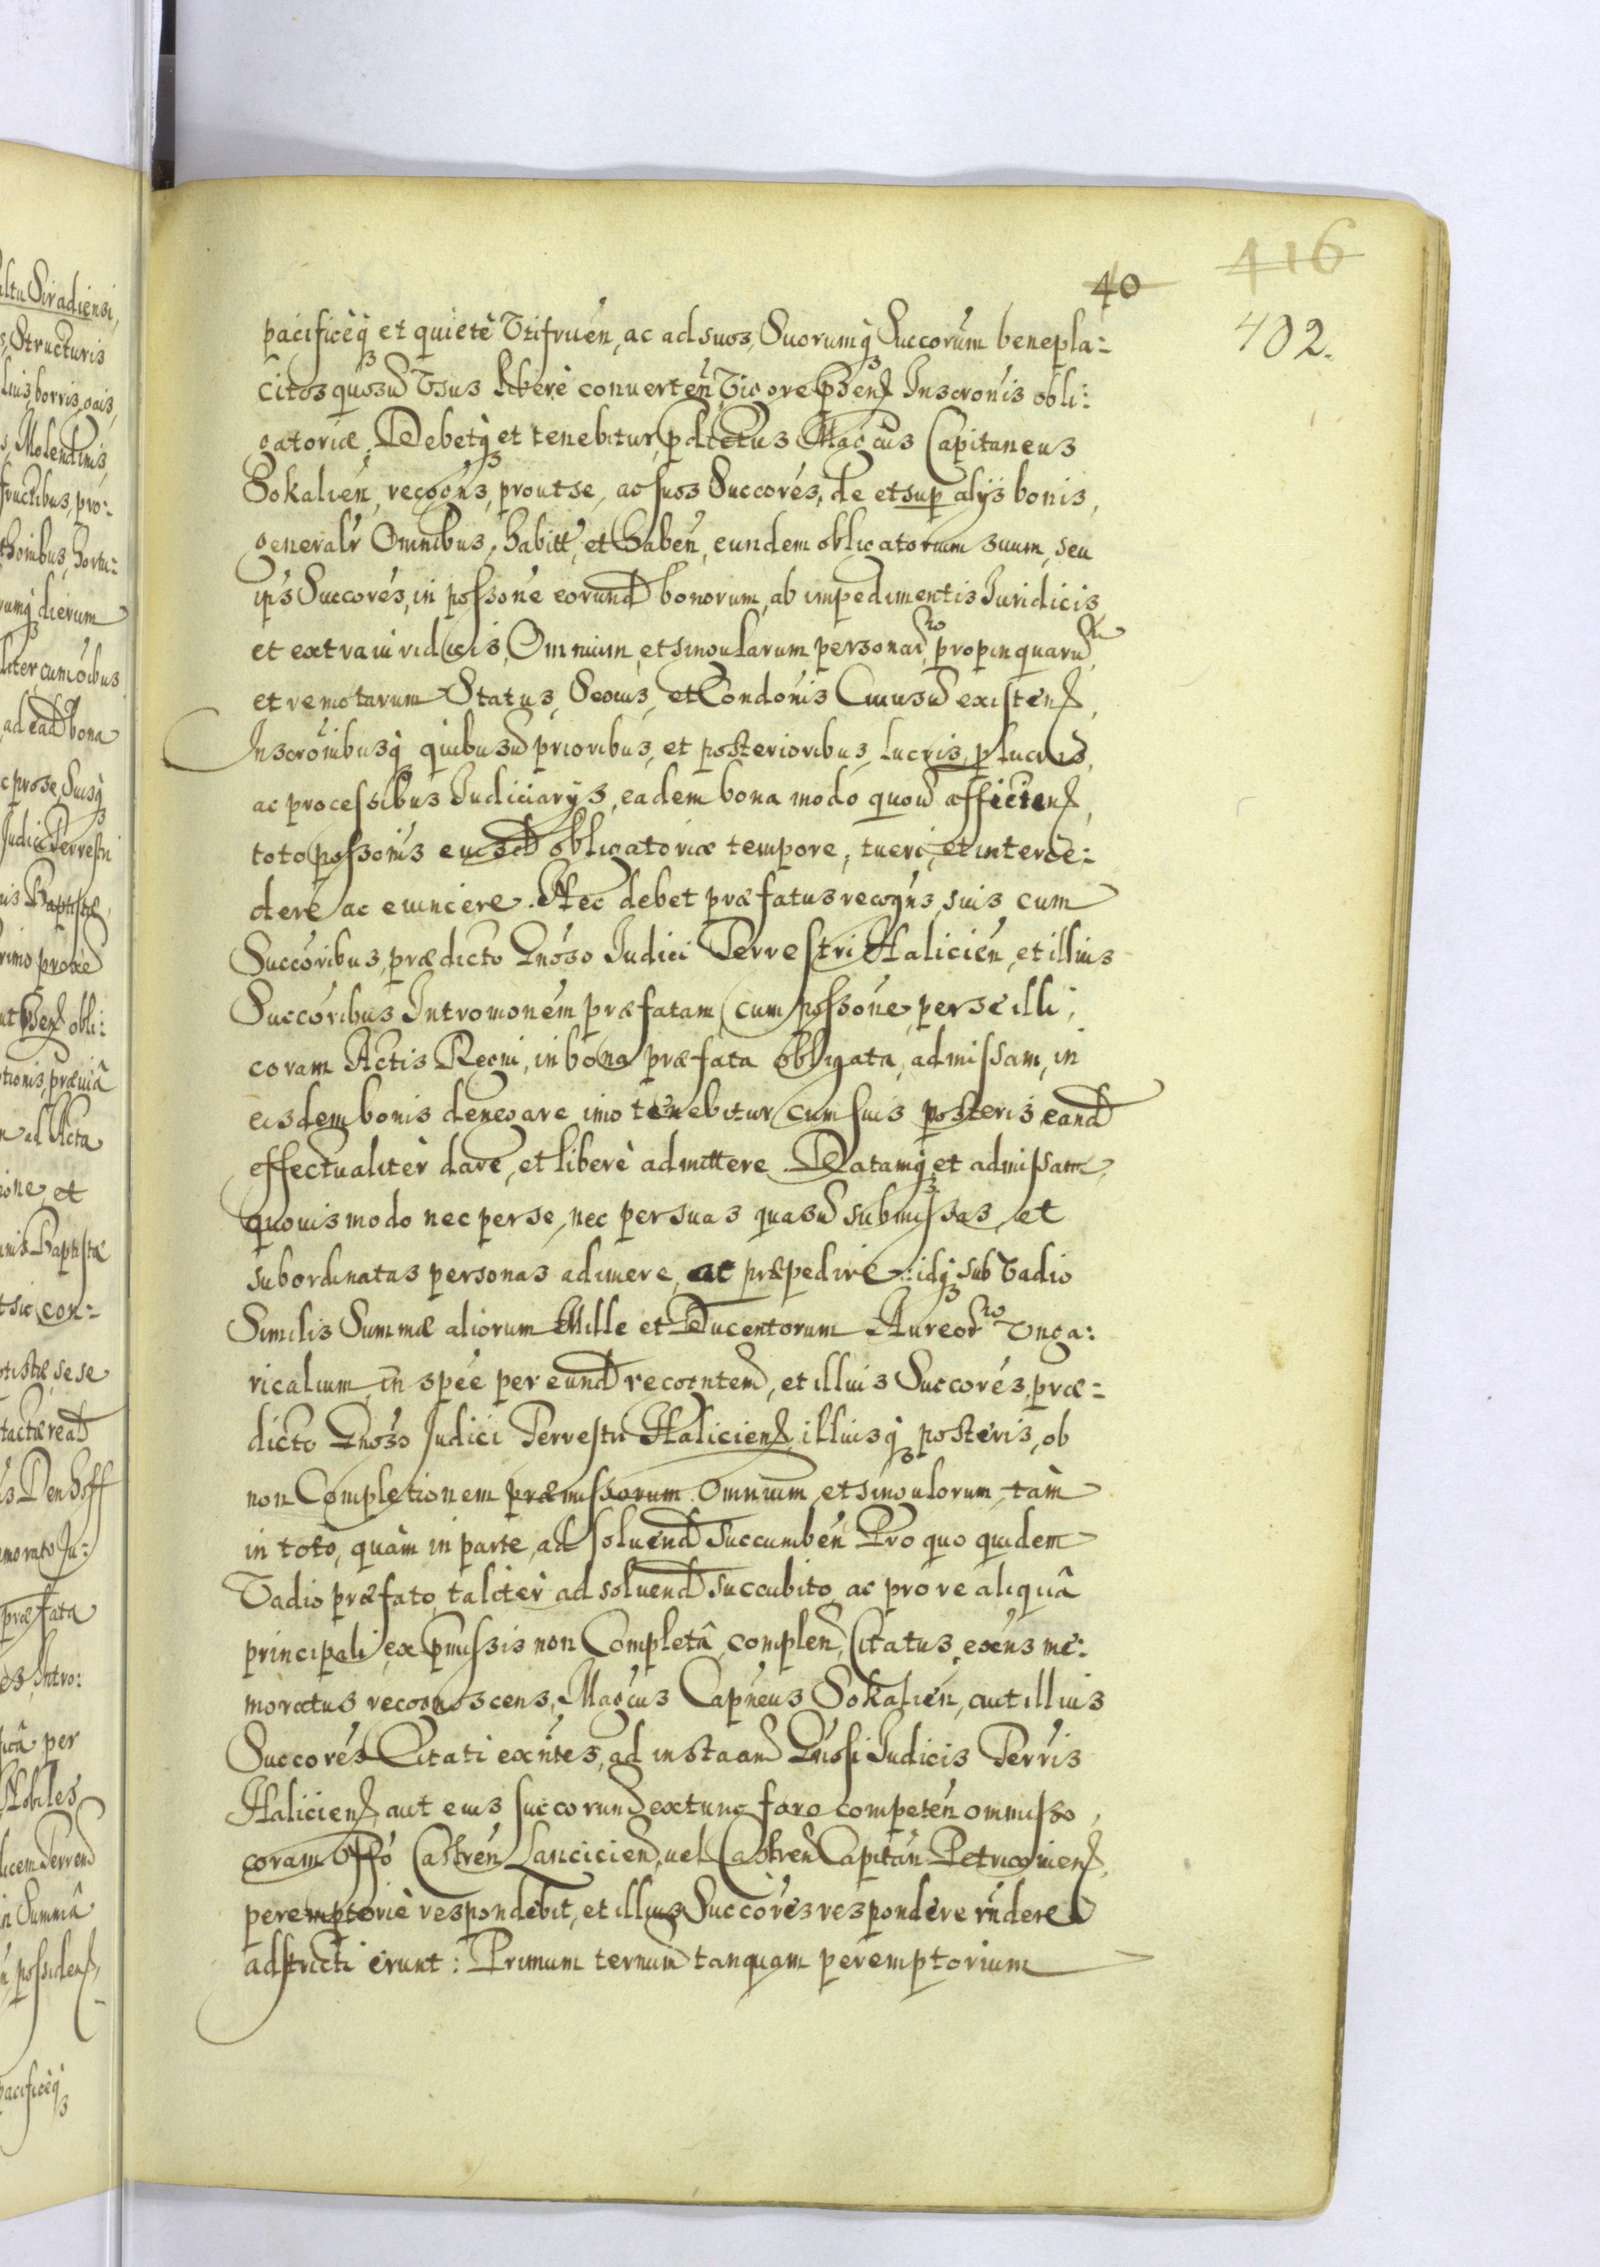 416
40
402.
pacificèq3 et quietè Utifruen, ac ad suos, Suorumq3 Succorum benepla:
citos quosuis Usus liberè conuerten, Vigore psen Inscronis obli:
gatoriæ. Debetq3 et tenebitur, pdictus Magcus Capitaneus
Sokalien, recogns, prout se, ac suos Succores, de et sup alijs bonis,
generalr Omnibus, habitt, et haben, eundem obligatorium suum, seu
ips Succores, in possone eorund bonorum, ab impedimentis Iuridicis
et extraiuridicis, Omnium, et singularum personar, propinquaru,
et remotarum Status, Sexus, et Condonis Cuiusuis existen,
Inscronibusq quibusuis prioribus, et posterioribus, lucris, plucris,
ac processibus Iudiciarijs, eadem bona modo quouis afficien,
toto possonis eiusd obligatoriæ tempore, tueri, et interce:
dere ac euincere. Nec debet præfatus recogns, suis cum
Succoribus, prædicto Gnoso Iudici Terrestri Halicien, et illius
Succoribus Intromonem præfatam, cum possone, per se illi,
coram Actis Regni, in bona præfata obligata, admissam, in
eisdem bonis denegare imo tenebitur cum suis posteris eand
effectualitèr dare, et liberè admittere. Datamq3 et admissam,
quouismodo nec per se, nec per suas quasuis submissas, et
subordinatas personas adimere, ac præpedire: idq3 sub Vadio
Similis Summæ aliorum Mille et Ducentorum Aureor Unga:
ricalium, in spee per eund recogntem, et illius Succores, præ:
dicto Gnoso Iudici Terrestri Halicien, illiusq3 posteris, ob
non Completionem præmissorum Omnium, et singulorum, tàm
in toto, quàm in parte, ad soluend succumben Pro quo quidem
Vadio præfato, talitèr ad soluend succubito, ac pro re aliquâ
principali, ex pmissis non Completâ, complen, Citatus, exens me:
moratus recognoscens, Magcus Capneus Sokalien, aut illius
Succores Citati exntes, ad instaam Gnosi Iudicis Terris
Halicien, aut eius succorum extunc foro competen ommisso,
coram Offo Castren Lancicien, uel Castren Capitan Petricouien,
peremptoriè respondebit, et illius Succores respondere rndere
adstricti erunt: Primum ternum tanquam peremptorium